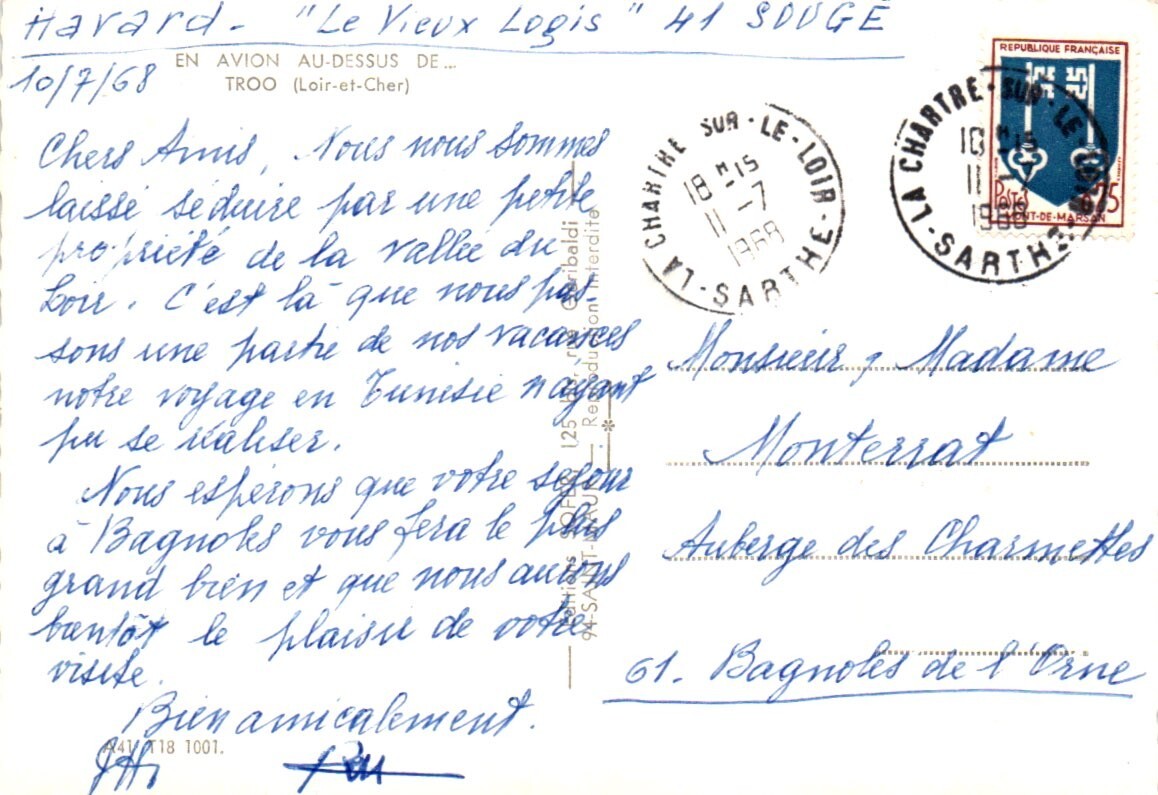 Havard - "Le Vieux Logis" 41 SOUGÉ
10/7/68
EN AVION AU-DESSUS DE...
TROO (Loir-et-Cher)
Chers Amis, Nous nous sommes
laissé séduire par une petite
propriété de la vallée du
Loir. C'est là que nous pas-
sons une partie de nos vacances
notre voyage en Tunisie n'ayant
pu se réaliser.
Nous espérons que votre séjour
à Bagnoles vous fera le plus
grand bien et que nous aurons
bientôt le plaisir de votre
visite.
Bien amicalement.
A41 T18 1001.
Editions SOFER 125 rue Garibaldi
94-SAINT-MAUR — Reproduction interdite
LA CHARTRE SUR-LE-LOIR-SARTHE
18 H 15
11-7
1968
LA CHARTRE-SUR-LE-LOIR-SARTHE
18 H 15
11-7
1968
REPUBLIQUE FRANÇAISE
POSTES 0,05
MONT-DE-MARSAN
Monsieur, Madame
Monterrat
Auberge des Charmettes
61. Bagnoles de l'Orne